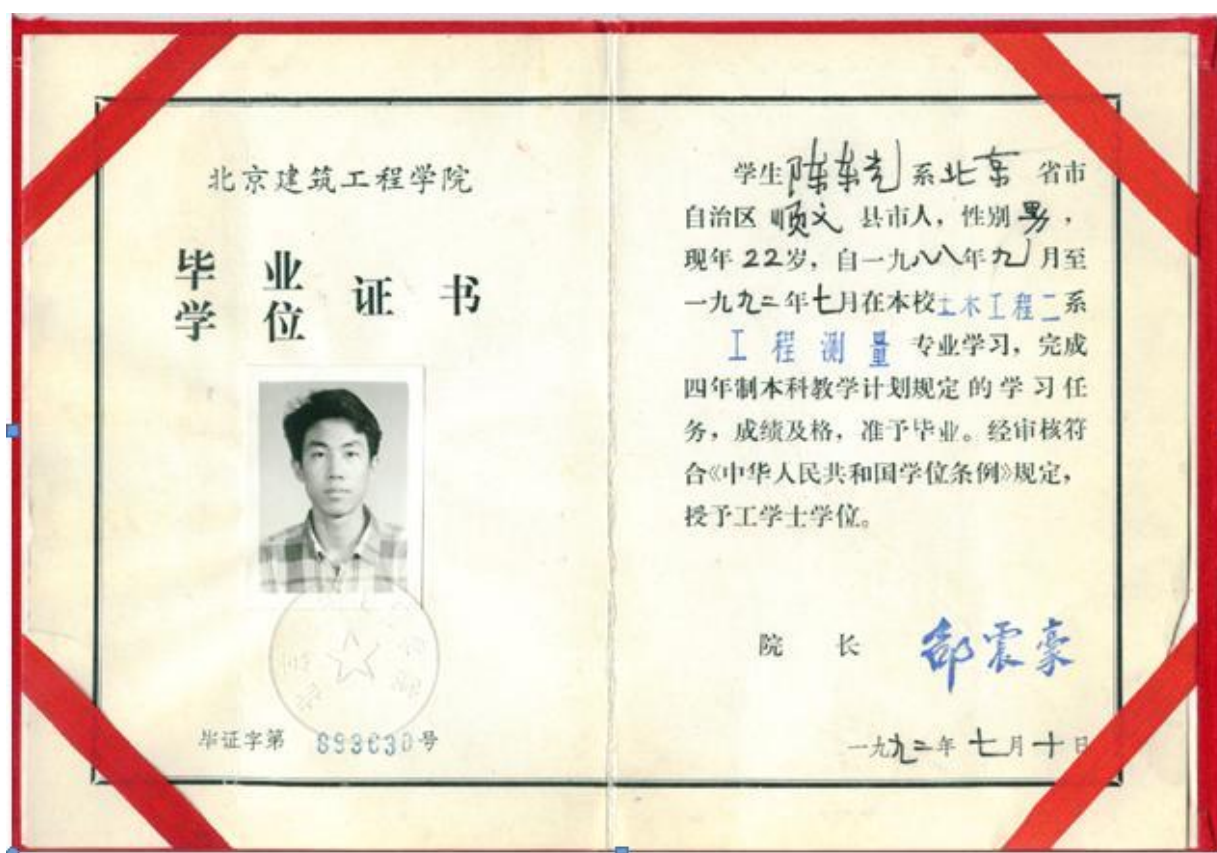 北京建筑工程学院
毕业证书
学位
毕证字第 号
学生陈 系北京省市
自治区 顺义 县市人，性别男，
现年22岁，自一九八八年九月至
一九九二年七月在本校土木工程二系
工程测量 专业学习，完成
四年制本科教学计划规定的学习任
务，成绩及格，准予毕业。经审核符
合《中华人民共和国学位条例》规定，
授予工学士学位。
院 长 郜震豪
一九九二年七月十日